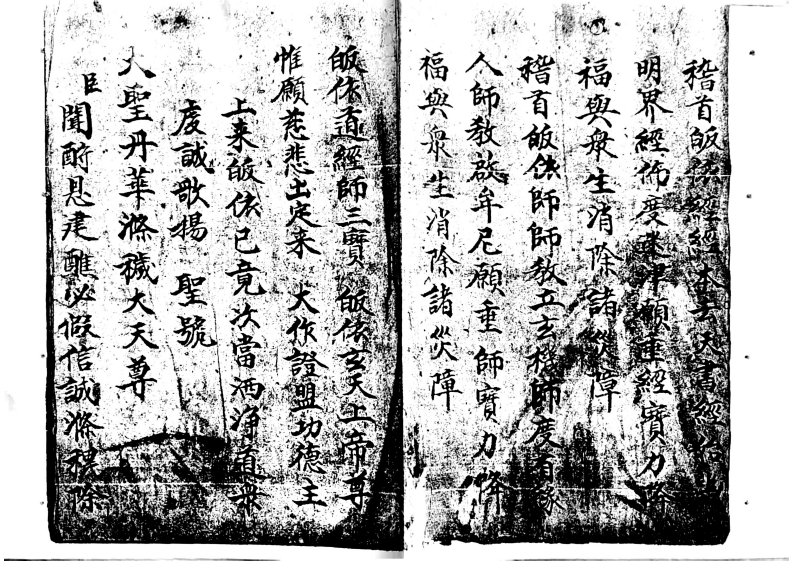 稽首皈依經經本玄天書經
明界經佈度迷津願垂經寶力降
福與衆生消除諸災障
稽首皈依師師教立玄機師度有緣
人師教啟牟尼願垂師寶力降
福與衆生消除諸災障
皈依道經師三寶皈依玄天上帝尊
惟願慈悲出定來 大作證盟功德主
上来皈依已竟次當洒净道衆
虔誠歌揚 聖號
大聖丹華滌穢大天尊
臣聞酧恩建醮必假信誠滌穢除